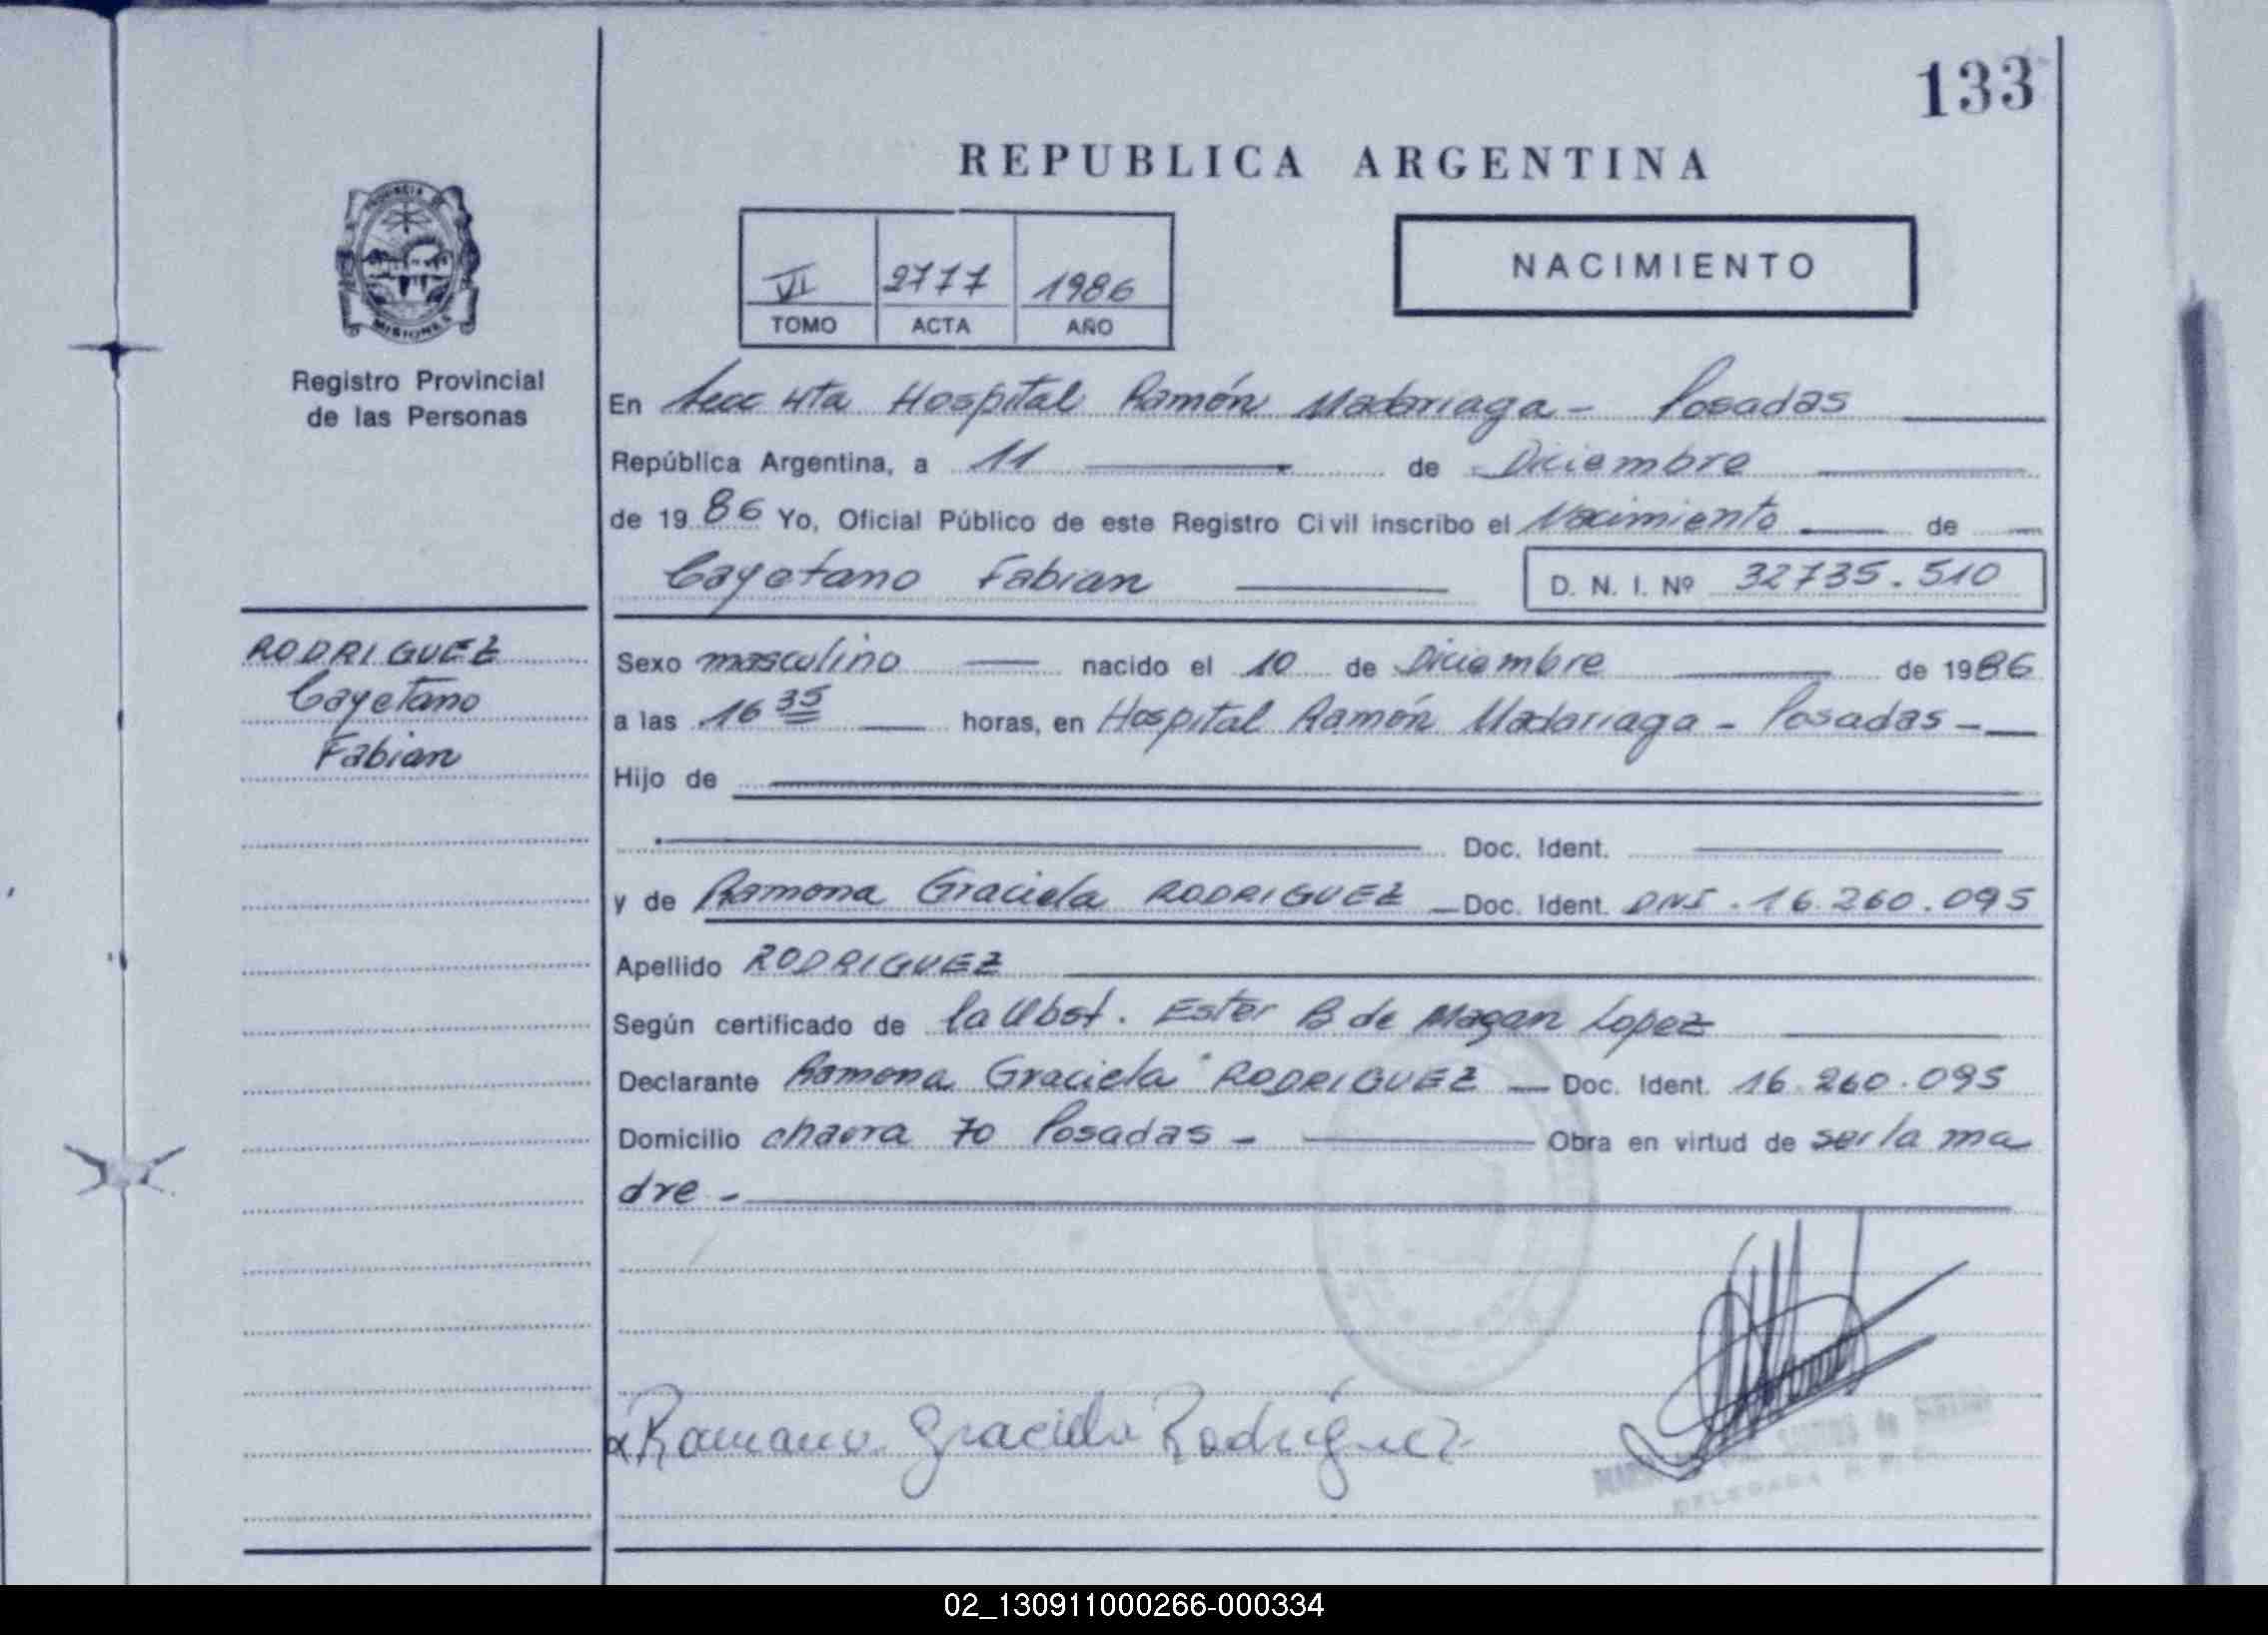 133
REPUBLICA ARGENTINA
PROVINCIA DE
MISIONES
VI 2777 1986
TOMO ACTA AÑO
NACIMIENTO
Registro Provincial
de las Personas
En Secc 4ta Hospital Ramón Madariaga - Posadas
República Argentina, a 11 de Diciembre
de 1986 Yo, Oficial Público de este Registro Civil inscribo el Nacimiento de
Cayetano Fabian D. N. I. Nº 32735.510
RODRIGUEZ
Cayetano
Fabian
Sexo masculino nacido el 10 de Diciembre de 1986
a las 16 35 horas, en Hospital Ramón Madariaga - Posadas -
Hijo de
Doc. Ident.
y de Ramona Graciela RODRIGUEZ Doc. Ident. DNI. 16.260.095
Apellido RODRIGUEZ
Según certificado de la Obst. Ester B de Magan Lopez
Declarante Ramona Graciela RODRIGUEZ Doc. Ident. 16.260.095
Domicilio chacra 70 Posadas - Obra en virtud de ser la ma
dre -
x Ramana Graciela Rodríguez
SANTOS de
DELEGADA R. P.
02_130911000266-000334